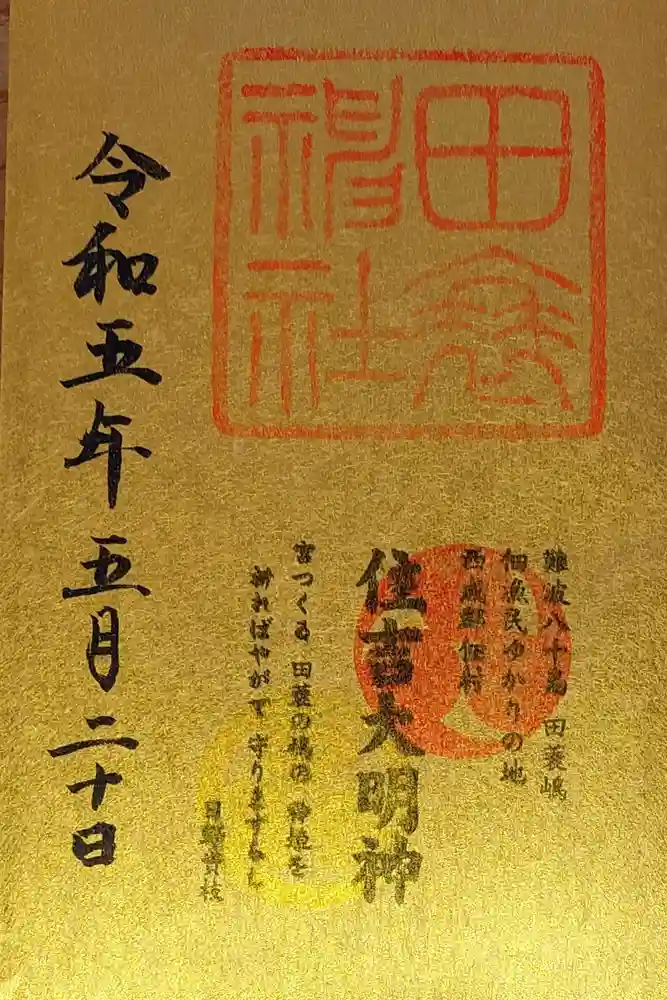 田蓑
神社
難波八十島 田蓑嶋
佃漁民ゆかりの地
西成郡佃村
住吉大明神
宮つくる 田蓑の橋の
祈ればやがて 守ります
令和五年五月二十日